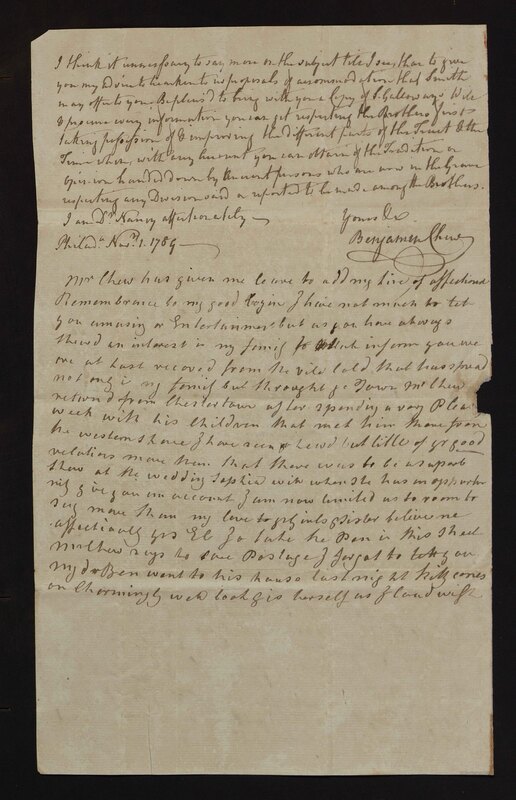 I think it unnecessary to say more on the subject till I see, than to give
you my advice to hearken to no proposals of accommodation that Smith
may offer to you. Be pleas'd to bring with you a Copy of S. Galloways Will
& procure every information you can get respecting the Brothers first
taking possession of & improving the different parts of the Tract & the
Time when, with any account you can obtain of the Tradition or
opinion handed down by the anct persons who are now in the Grave
respecting any Division said or reported to be made among the Brothers.
I am Dr Nancy affectionately
Yours &c
Philada. Novr. 1. 1789
Benjamin Chew
Mr Chew has given me leave to add my line of affectionate
Remembrance to my good I have not much to tell
you amusing or Entertaining but as you have always
shewd an interest in my family inform you we
are at last recoverd from the vile cold that has spread
not only in my family but throught ye Town Mr Chew
returnd from Chestertown after spending a very Pleas
week with his Children that met him there from
the western shore I have seen & heard but little of yr good
relations more then that there was to be a superb
shew at the wedding Sophia will when she has an opportu
nity give you an account I am now limited as to room to
say more than my love to yr sister believe me
affectionately yrs El to take the Pen in this sheet
Mr Chew says to save Postage I forgot to tell you
my dr Ben went to his house last night Kitty comes
on Charmingly well looks is herself as could wish